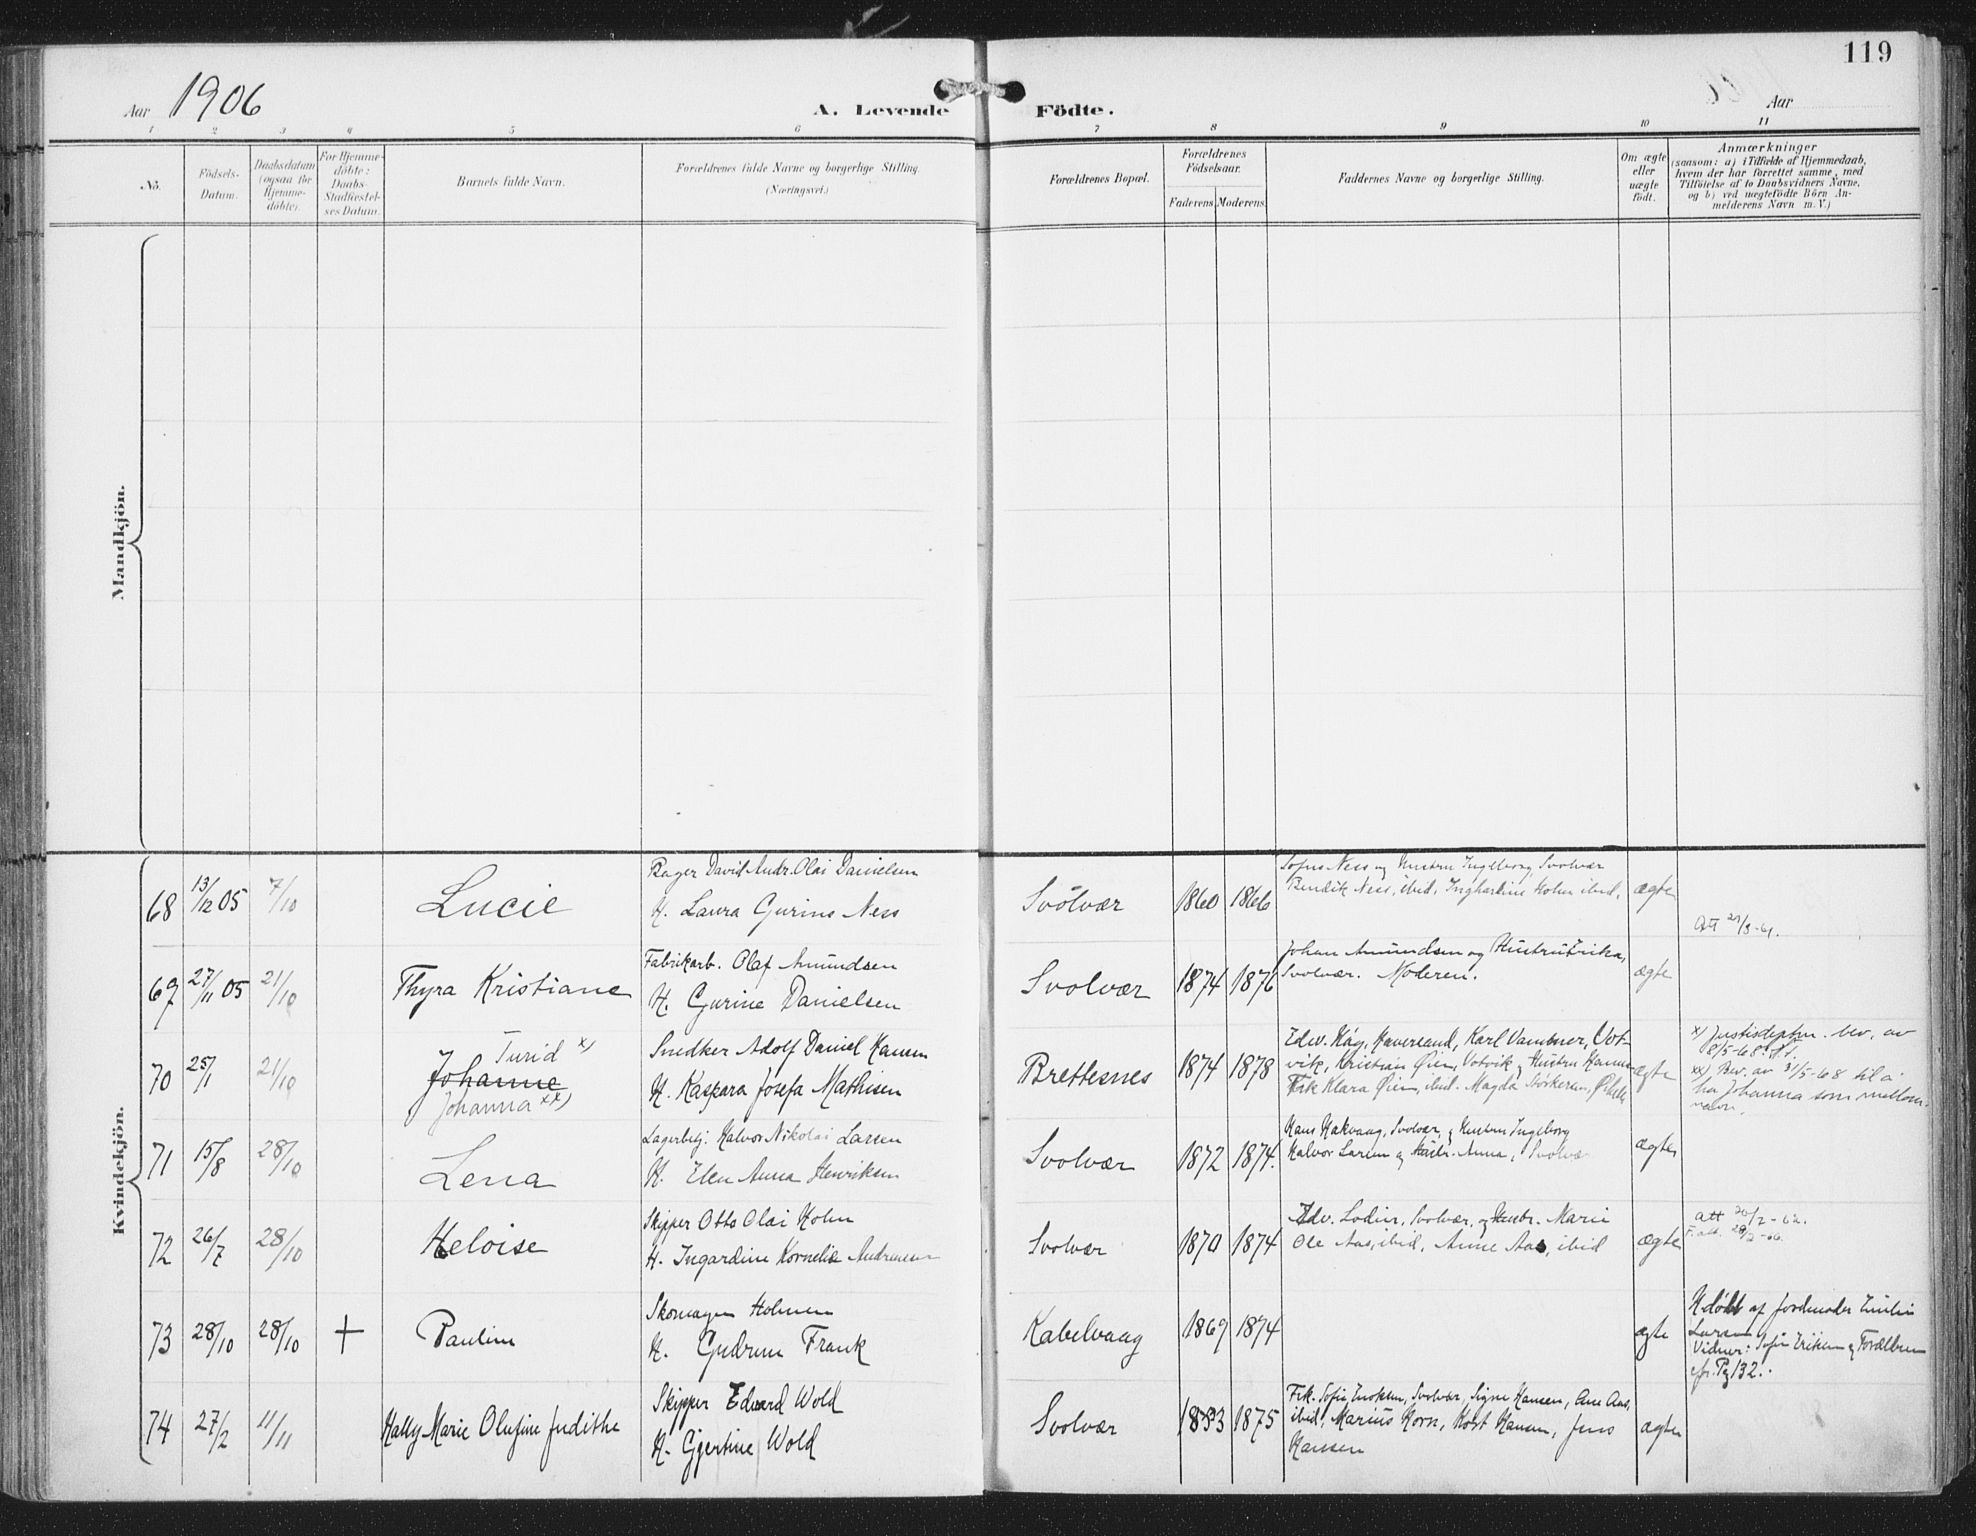 119
Aar 1906
A. Levende Födte.
Aar
1 2 3 4 5 6 7 8 9 10 11
No.
Födsels-
Datum.
Daabsdatum
(ogsaa for
Hjemme-
döbte).
For Hjemme-
döbte:
Daabs-
Stadfæstel-
ses Datum.
Barnets fulde Navn.
Forældrenes fulde Navne og borgerlige Stilling.
(Næringsvei.)
Forældrenes Bopæl.
Forældrenes
Födselsaar.
Faderens. Moderens.
Faddernes Navne og borgerlige Stilling.
Om ægte
eller
uægte
födt.
Anmærkninger
(saasom: a) i Tilfælde af Hjemmedaab,
hvem der har forrettet samme, med
Tilföielse af to Daabsvidners Navne,
og b) ved uægtefödte Börn An-
melderens Navn m. V.)
Mandkjön.
Kvindekjön.
68 13/12 05 7/10 Lucie
Bager David Andr. Olai Danielsen
H. Laura Gurine Ness
Svolvær 1860 1866
Sofus Ness og Hustru Ingeborg, Svolvær
Bendik Ness, ibid. Inghardine Holm ibid.
ægte
Att 27/3-61.
69 27/11 05 21/10 Thyra Kristiane
Fabrikarb. Olaf Amundsen
H. Gurine Danielsen
Svolvær 1874 1876
Johan Amundsen og Hustru Erika,
Svolvær. Moderen.
ægte
70 25/1 21/10 Turid x)
Johanne
Johanna xx)
Snedker Adolf Daniel Hansen
H. Kaspara Josefa Mathisen
Brettesnes 1874 1878
Edv. Kåg, Haversand, Karl Vambner, Vot-
vik, Kristian Øien, Votvik og Hustru Hanna
Frk Klara Øien, ibid. Magda Störkersen,
ægte
x) Justisdeptm. bev. av
8/5-68.
xx) Bev. av 31/5-68 til å
ha Johanna som mellom-
navn.
71 15/8 28/10 Lena
Lagerbetj. Halvor Nikolai Larsen
H. Elen Anna Henriksen
Svolvær 1872 1874.
Hans Hakvaag, Svolvær, og Hustru Ingeborg
Halvor Larsen og Hustr. Anna, Svolvær
ægte
72 26/7 28/10 Heloise
Skipper Otto Olai Holm
H. Ingardine Kornelie Andreassen
Svolvær 1870 1874
Edv. Lodin, Svolvær, og Hustr. Marie
Ole Aas, ibid, Anne Aas, ibid
ægte
att 20/2-62.
F. att. 29/2-66.
73 28/10 28/10 + Pauline
Skomager Holmen
H. Gudrun Frank
Kabelvaag 1869 1874
ægte
H.döbt af Jordmoder Emilie
Larsen
Vidner: Sofie Eriksen og Forældrene
cfr. Pg 132.
74 27/2 11/11 Hally Marie Olufine Judithe
Skipper Edvard Wold
H. Gjertine Wold
Svolvær 1883 1875
Frk. Sofie Enoksen, Svolvær, Signe Hansen, Ane Aas,
ibid, Marius Horn, Kost Hansen, Jens
Hansen
ægte